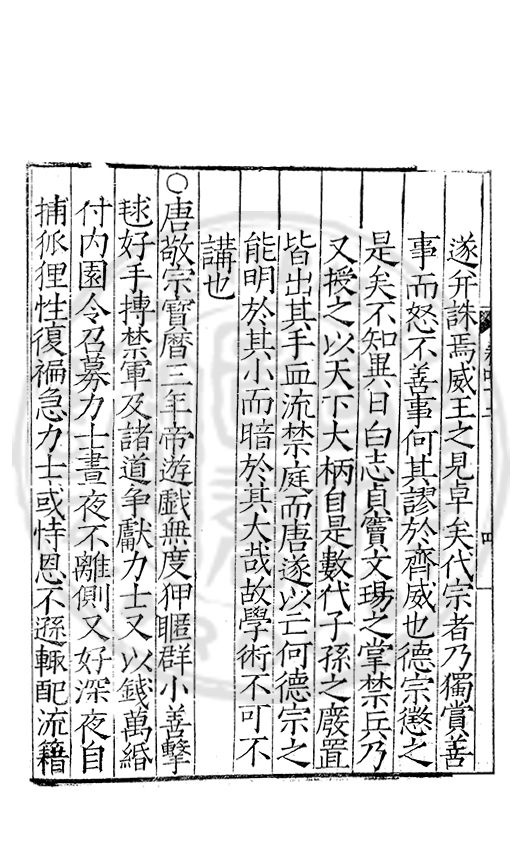 遂幷誅焉威王之見卓矣代宗者乃獨賞善
事而怒不善事何其謬於齊威也德宗懲之
是矣不知異日白志貞竇文瑒之掌禁兵乃
又授之以天下大柄自是數代子孫之廢置
皆出其手血流禁庭而唐遂以亡何德宗之
能明於其小而暗於其大哉故學術不可不
講也
○唐敬宗寶曆三年帝遊戲無度狎暱群小善擊
毬好手搏禁軍及諸道争獻力士又以錢萬緡
付内園令召募力士晝夜不離側又好深夜自
捕狐狸性復褊急力士或恃恩不遜輒配流籍